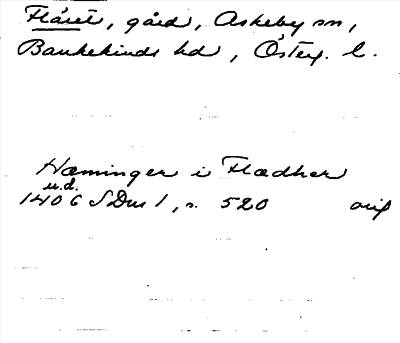 Fläret, gård, Askeby sn,
Bankekinds hd, Österg. l.
Hæminger i Flædher
u.d.
1406 SDns 1, s. 520 orig